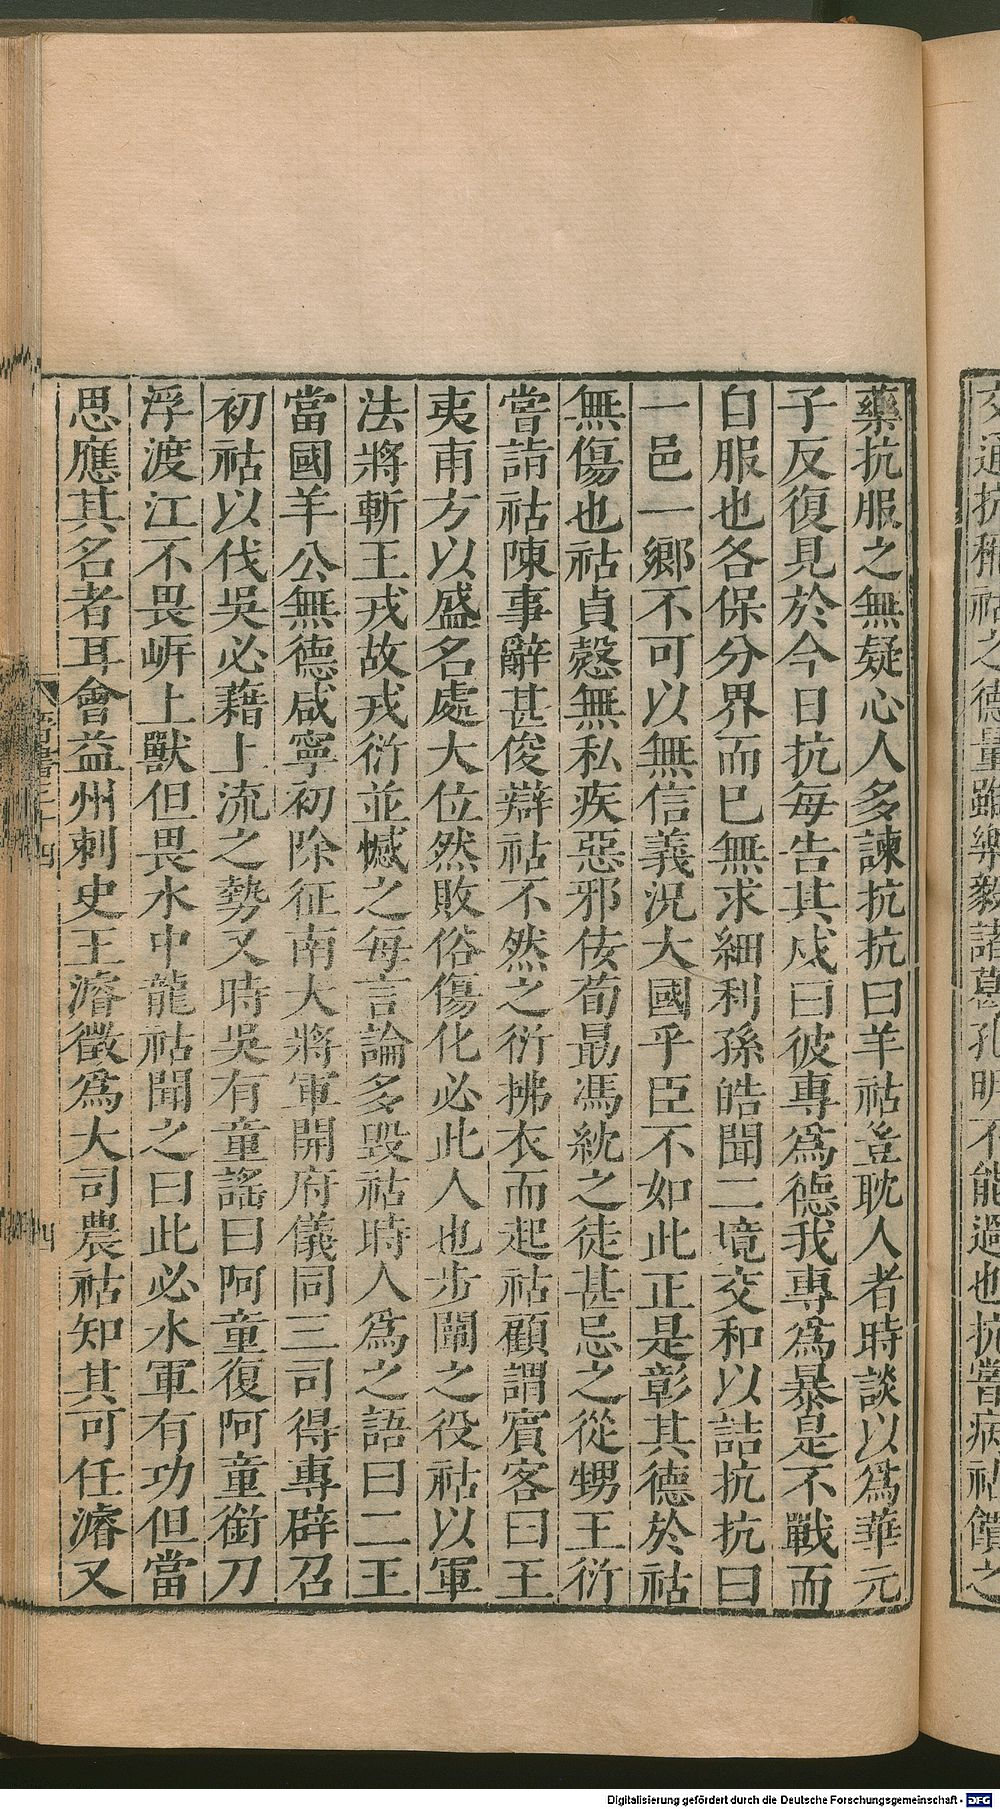 交通抗稱祜之德量雖樂毅諸葛孔明不能過也抗嘗病祜饋之
藥抗服之無疑心人多諫抗抗曰羊祜豈耽人者時談以爲華元
子反復見於今日抗每告其戍曰彼專爲德我專爲暴是不戰而
自服也各保分界而已無求細利孫皓聞二境交和以詰抗抗曰
一邑一鄉不可以無信義況大國乎臣不如此正是彰其德於祜
無傷也祜貞愨無私疾惡邪佞荀勗馮紞之徒甚忌之從甥王衍
嘗詣祜陳事辭甚俊辯祜不然之衍拂衣而起祜顧謂賓客曰王
夷甫方以盛名處大位然敗俗傷化必此人也步闡之役祜以軍
法將斬王戎故戎衍並憾之每言論多毀祜時人爲之語曰二王
當國羊公無德咸寧初除征南大將軍開府儀同三司得專辟召
初祜以伐吳必藉上流之勢又時吳有童謠曰阿童復阿童銜刀
浮渡江不畏岸上獸但畏水中龍祜聞之曰此必水軍有功但當
思應其名者耳會益州刺史王濬徵爲大司農祜知其可任濬又
Digitalisierung gefördert durch die Deutsche Forschungsgemeinschaft - DFG